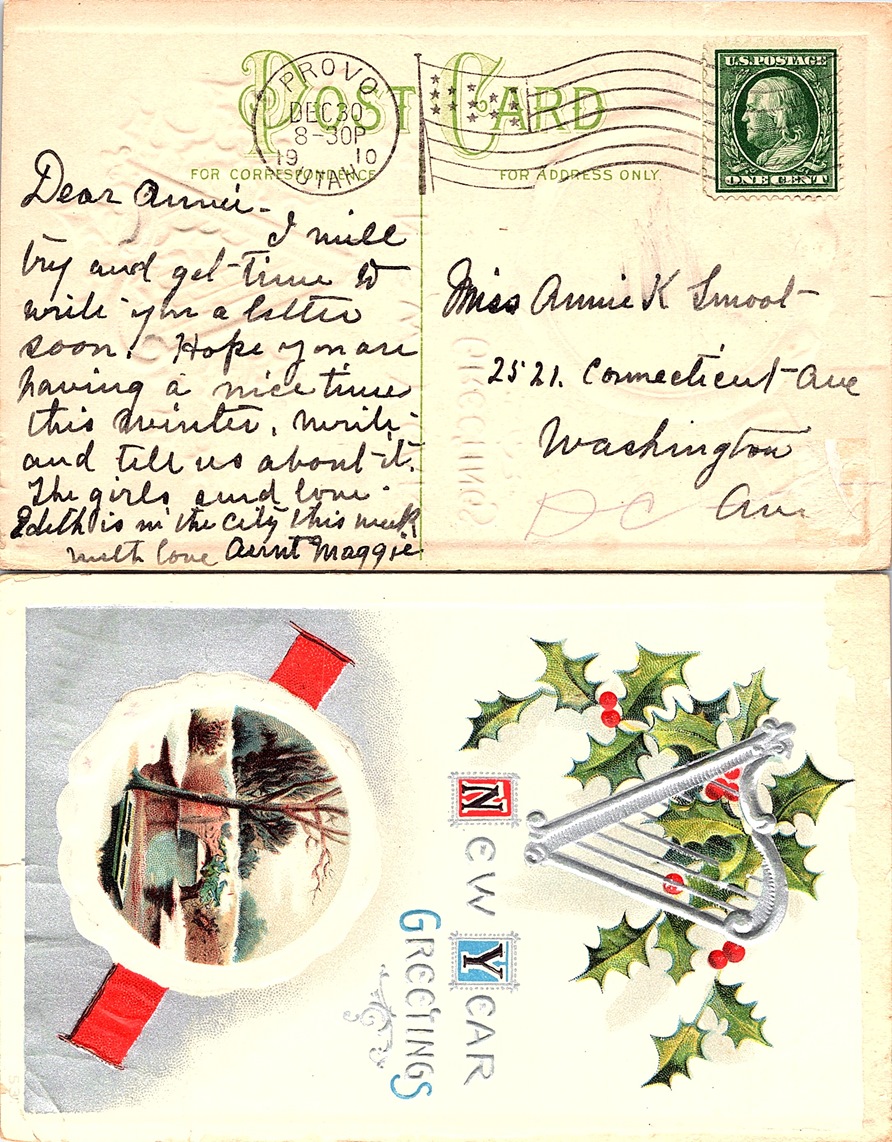 POST CARD
PROVO
DEC 30
8-30P
19 10
UTAH
U.S. POSTAGE
ONE CENT
FOR CORRESPONDENCE
FOR ADDRESS ONLY.
Dear Annie -
I will
try and get time to
write you a letter
soon. Hope you are
having a nice time
this winter, write
and tell us about it.
The girls send love.
Edith is in the city this week
with love Aunt Maggie
Miss Annie K Smoot
2521. Connecticut Ave
Washington
D C
GREETINGS
NEW YEAR
GREETINGS